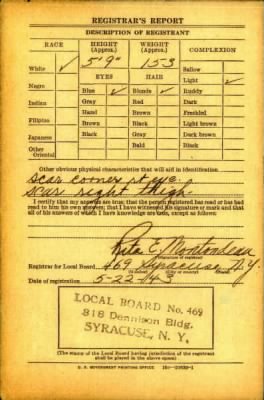 REGISTRAR'S REPORT
DESCRIPTION OF REGISTRANT
RACE HEIGHT (Approx.) WEIGHT (Approx.) COMPLEXION
5'9" 153
White ✓ Sallow
EYES HAIR Light ✓
Negro Blue ✓ Blonde ✓ Ruddy
Indian Gray Red Dark
Hazel Brown Freckled
Filipino Brown Black Light brown
Japanese Black Gray Dark brown
Other Oriental Bald Black
Other obvious physical characteristics that will aid in identification
scar corner rt eye
scar right thigh
I certify that my answers are true; that the person registered has read or has had
read to him his own answers; that I have witnessed his signature or mark and that
all of his answers of which I have knowledge are true, except as follows:
Rita E.
(Signature of registrar)
Registrar for Local Board 469 Syracuse N.Y.
Date of registration 5-22-43
LOCAL BOARD No. 469
818 Dennison Bldg.
SYRACUSE, N. Y.
(The stamp of the Local Board having jurisdiction of the registrant
shall be placed in the above space)
U. S. GOVERNMENT PRINTING OFFICE